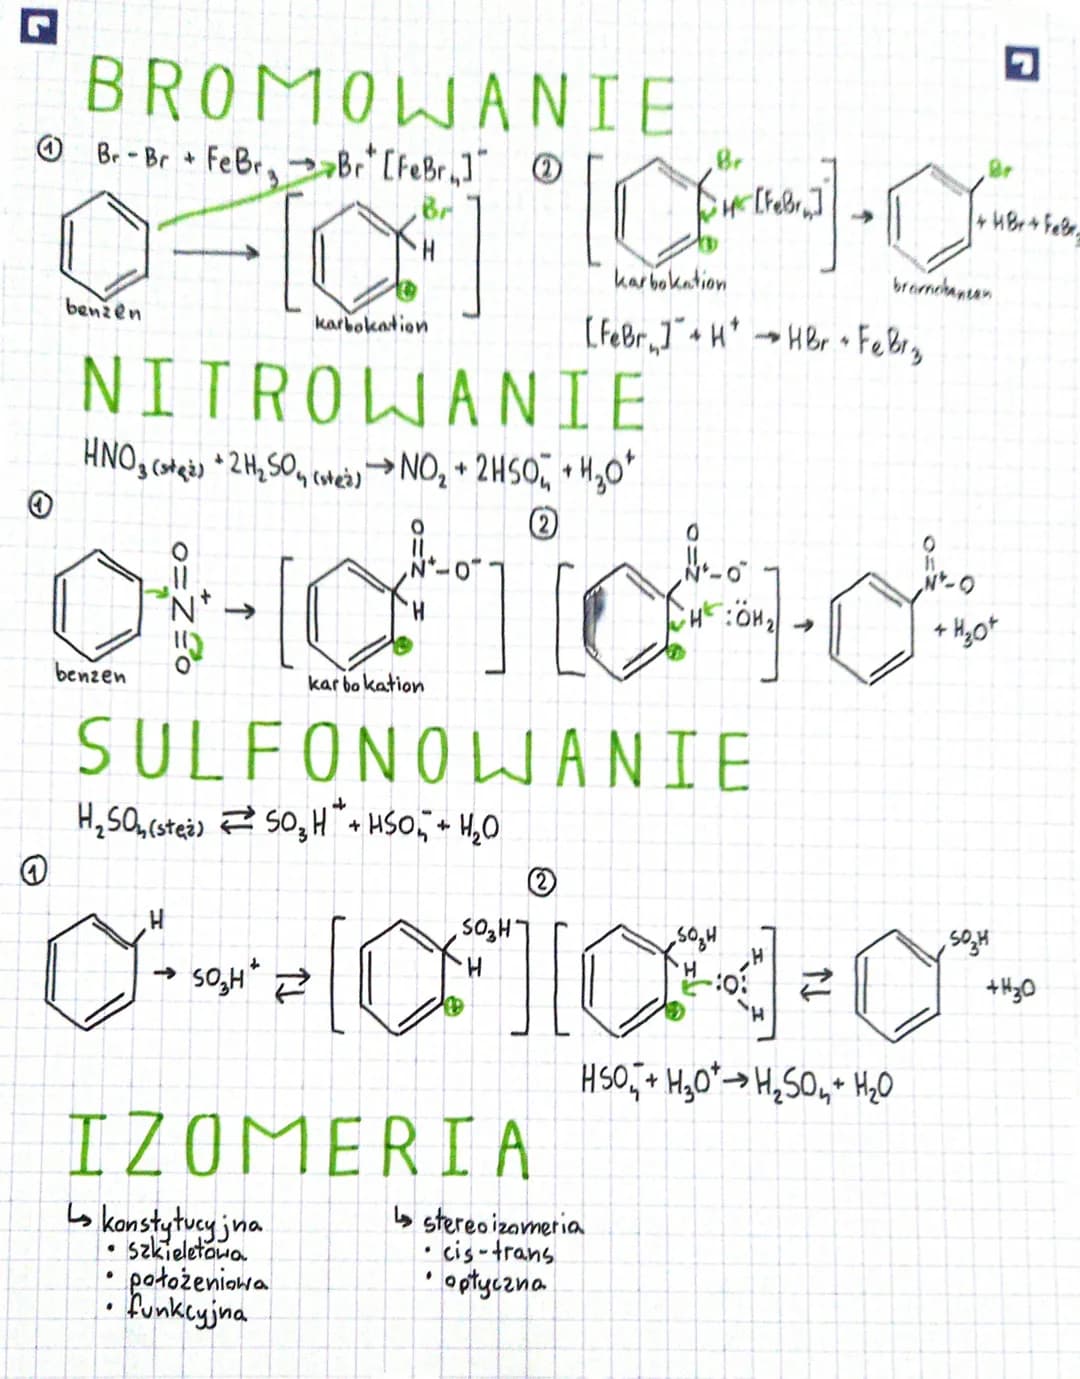 BROMOWANIE
① Br-Br + FeBr₃ → Br⁺ [FeBr₄]⁻
benzen
Br
H
⊕
karbokation
②
Br
H [FeBr₄]⁻
⊕
karbokation
→
Br
+ HBr + FeBr₃
[FeBr₄]⁻ + H⁺ → HBr + FeBr₃
NITROWANIE
HNO₃ (stęż) + 2H₂SO₄ (stęż) → NO₂ + 2HSO₄⁻ + H₃O⁺
①
benzen
O
N⁺
O
→
O
N⁺-O⁻
H
⊕
karbokation
②
O
N⁺-O⁻
H :ÖH₂
⊕
→
O
N⁺-O
+ H₃O⁺
SULFONOWANIE
H₂SO₄ (stęż) ⇄ SO₃H⁺ + HSO₄⁻ + H₂O
①
H
→ SO₃H⁺ ⇄
SO₃H
H
⊕
②
SO₃H
H :O: H
H
⊕
⇄
SO₃H
+H₃O
HSO₄⁻ + H₃O⁺ → H₂SO₄ + H₂O
IZOMERIA
↳ konstytucyjna
• szkieletowa
• położeniowa
• funkcyjna
↳ stereoizomeria
• cis-trans
• optyczna